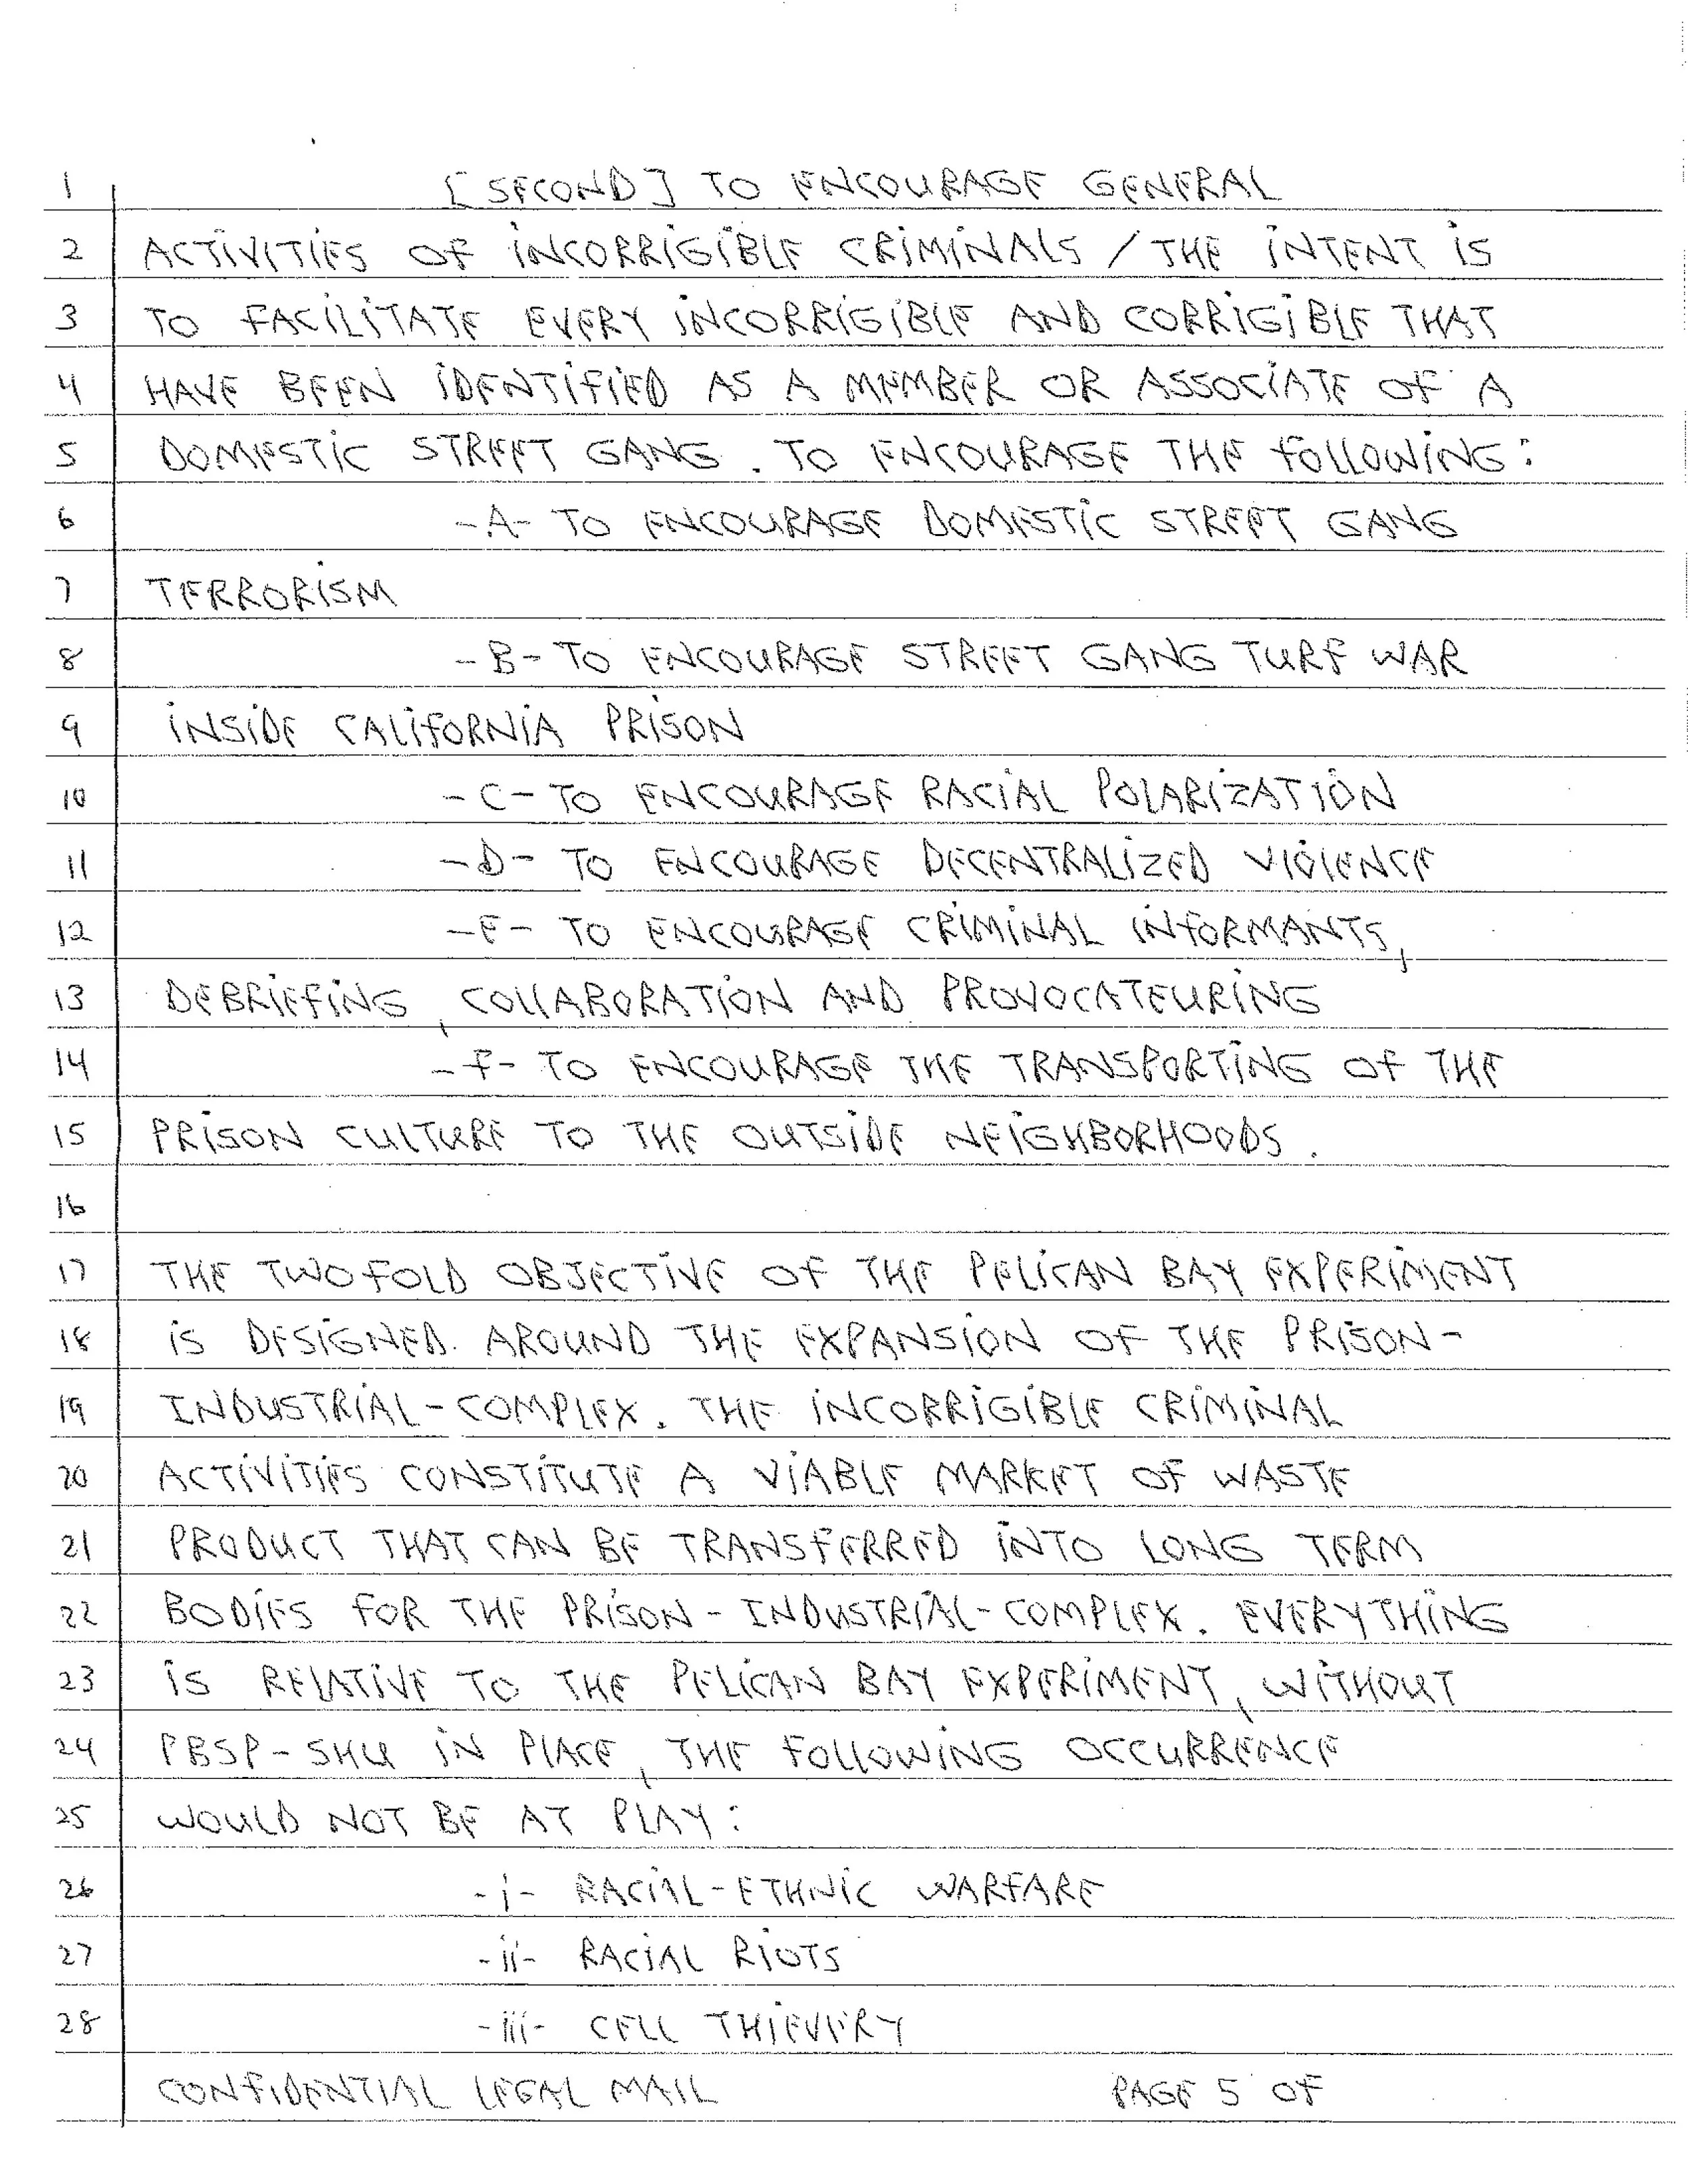 1 [SECOND] TO ENCOURAGE GENERAL
2 ACTIVITIES OF INCORRIGIBLE CRIMINALS / THE INTENT IS
3 TO FACILITATE EVERY INCORRIGIBLE AND CORRIGIBLE THAT
4 HAVE BEEN IDENTIFIED AS A MEMBER OR ASSOCIATE OF A
5 DOMESTIC STREET GANG. TO ENCOURAGE THE FOLLOWING:
6 -A- TO ENCOURAGE DOMESTIC STREET GANG
7 TERRORISM
8 -B- TO ENCOURAGE STREET GANG TURF WAR
9 INSIDE CALIFORNIA PRISON
10 -C- TO ENCOURAGE RACIAL POLARIZATION
11 -D- TO ENCOURAGE DECENTRALIZED VIOLENCE
12 -E- TO ENCOURAGE CRIMINAL INFORMANTS,
13 DEBRIEFING, COLLABORATION AND PROVOCATEURING
14 -F- TO ENCOURAGE THE TRANSPORTING OF THE
15 PRISON CULTURE TO THE OUTSIDE NEIGHBORHOODS.
16
17 THE TWOFOLD OBJECTIVE OF THE PELICAN BAY EXPERIMENT
18 IS DESIGNED AROUND THE EXPANSION OF THE PRISON-
19 INDUSTRIAL-COMPLEX. THE INCORRIGIBLE CRIMINAL
20 ACTIVITIES CONSTITUTE A VIABLE MARKET OF WASTE
21 PRODUCT THAT CAN BE TRANSFERRED INTO LONG TERM
22 BODIES FOR THE PRISON-INDUSTRIAL-COMPLEX. EVERYTHING
23 IS RELATIVE TO THE PELICAN BAY EXPERIMENT, WITHOUT
24 PBSP-SHU IN PLACE, THE FOLLOWING OCCURRENCE
25 WOULD NOT BE AT PLAY:
26 -i- RACIAL-ETHNIC WARFARE
27 -ii- RACIAL RIOTS
28 -iii- CELL THIEVERY
CONFIDENTIAL LEGAL MAIL PAGE 5 OF